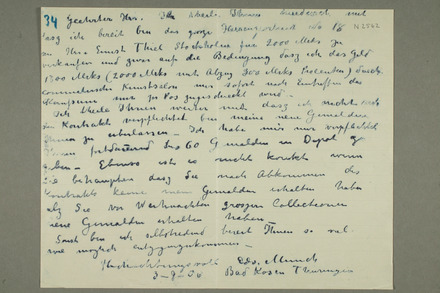 34 Geehrter Herr. Ich theile Ihnen hierdurch mit N 2562
dasz ich bereit bin das grosze
zu Hr. Ernst Thiel Stockholm für 2000 Mcks zu
verkaufen und zwar auf die Bedingung dasz ich das Geld
1700 Mcks (2000 Mcks mit Abzug 300 Mcks Procenten) durch
Commeterische Kunstsalon mir sofort nach Eintreffen des
mir zugesandt wird –
Ich theile Ihnen weiter mit dasz ich nicht nach
den Kontrakt verpflichtet bin meine neue Gemälden
Ihnen zu überlassen – Ich habe mir nur verpflichtet
60 Gemälden in Depot zu
geben – Ebenso ist es nicht korrekt wenn
Sie behaupten dasz Sie nach Abkommen des
Kontrakts keine neue Gemälden erhalten haben
als Sie vor Weihnachten grossere Collectionen
neue Gemälden erhalten haben –
Sonst bin ich selbstredend bereit Ihnen so viel
wie möglich entgegenzukommen –
Hochachtungsvoll Edv. Munch
Bad Kosen Thüringen